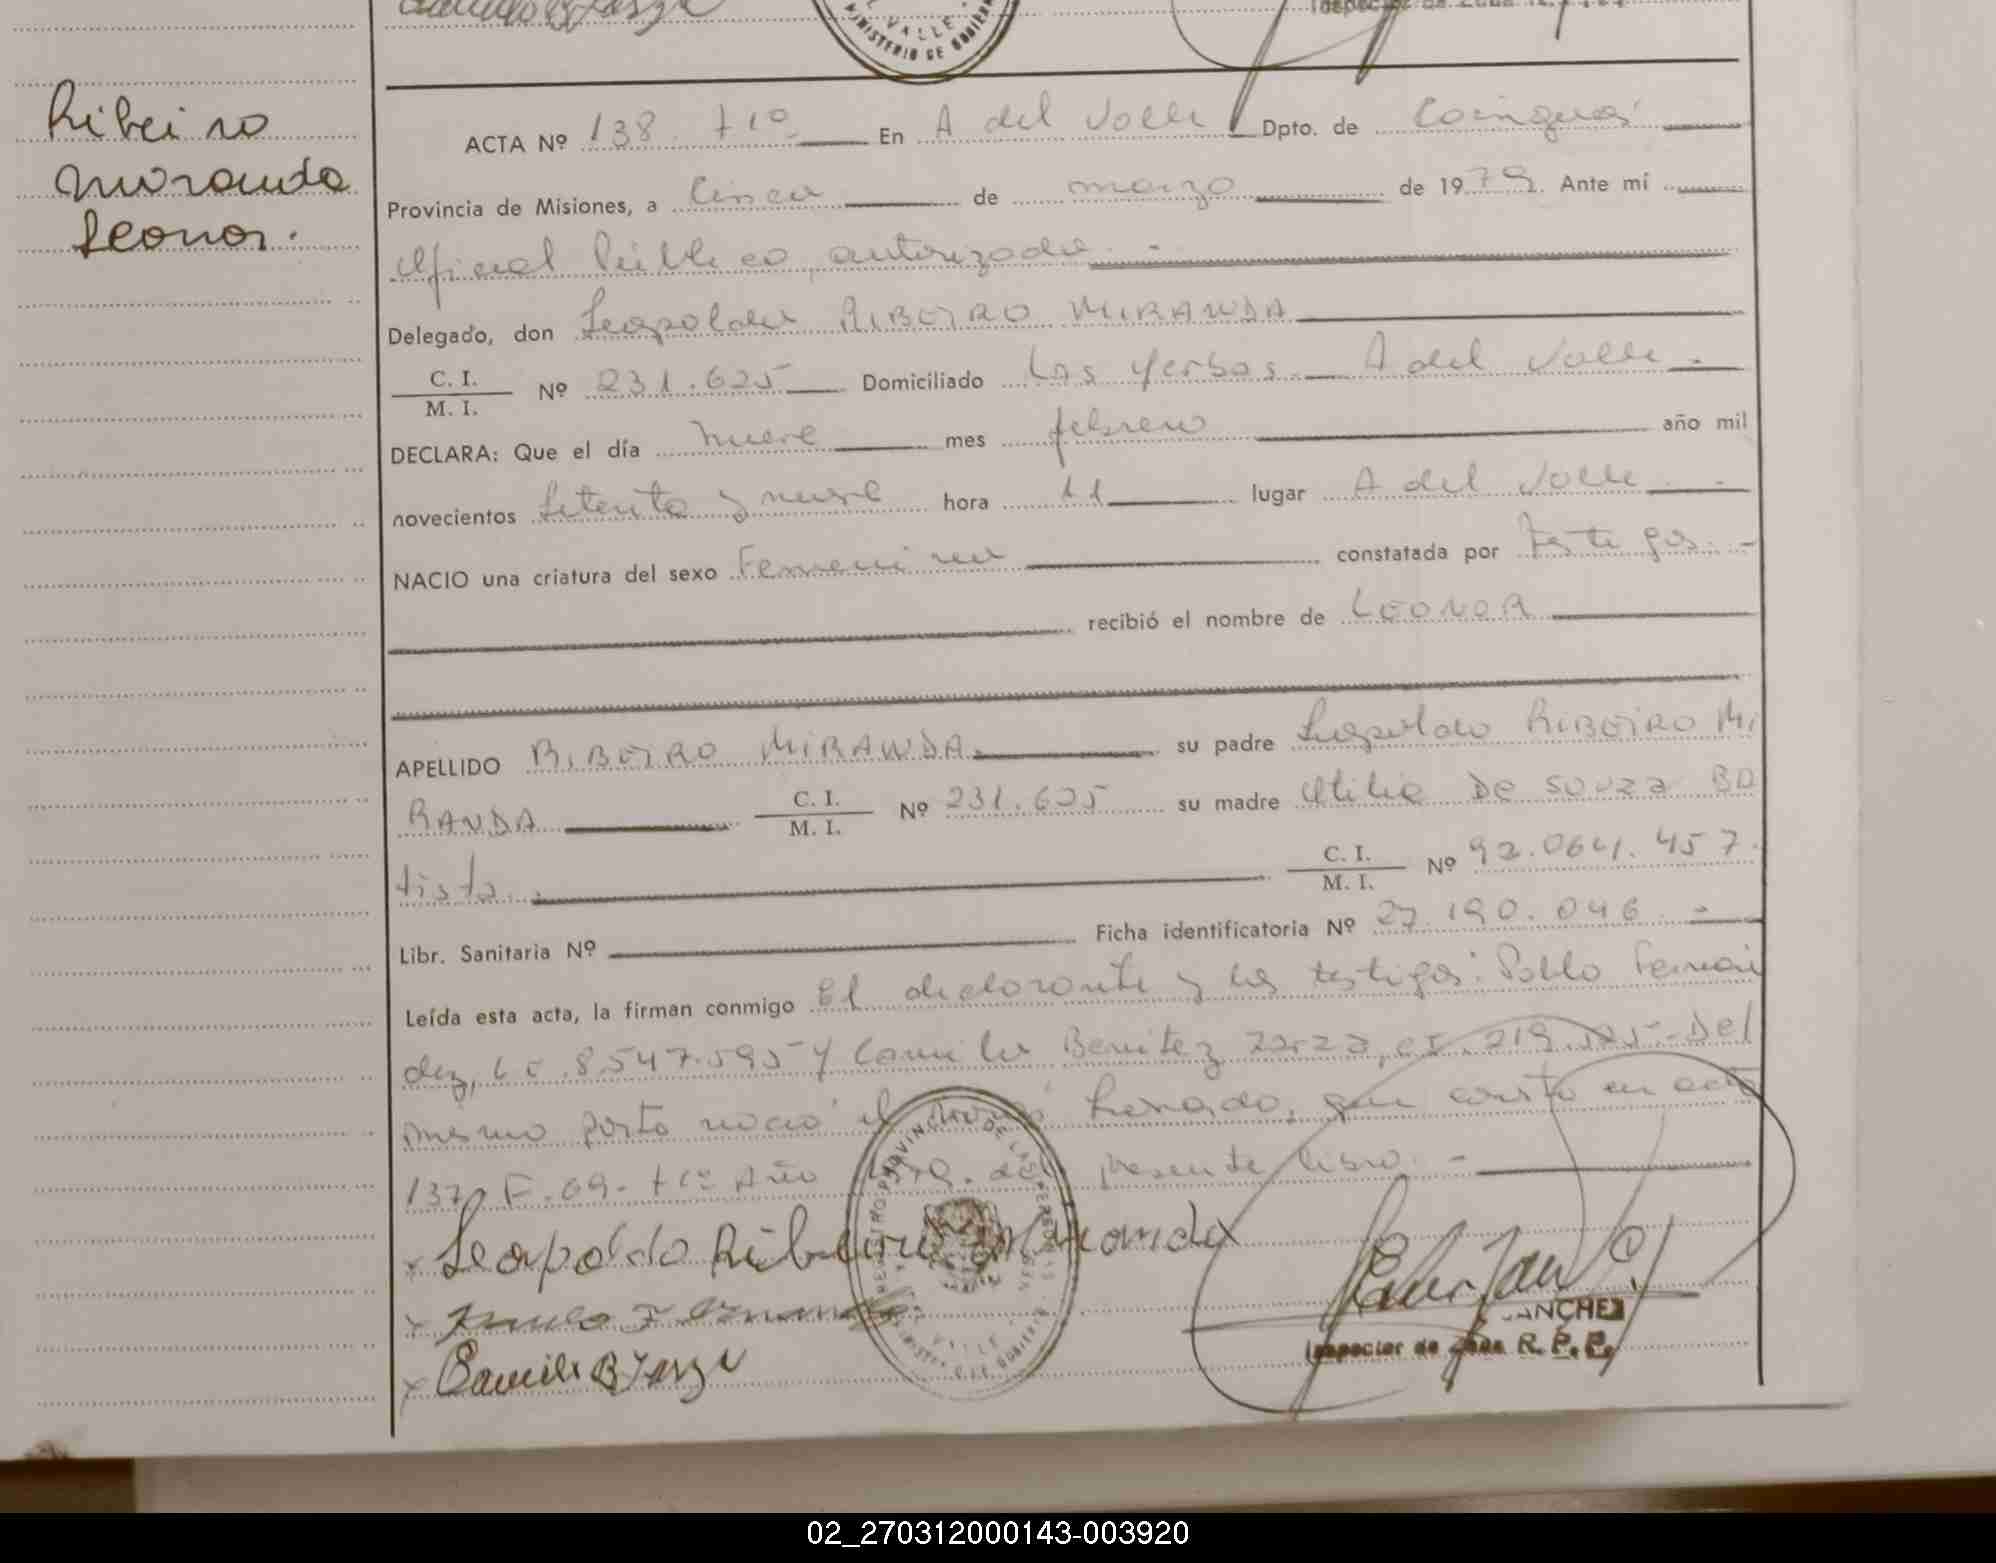 Inspector de Zona R. P. P.
VALLE
MINISTERIO DE GOBIERNO
Ribeiro
Miranda
Leonor.
ACTA Nº 138 tº 1º En A del Valle Dpto. de Cainguás
Provincia de Misiones, a cinco de marzo de 1979. Ante mí
Oficial Público autorizado. -
Delegado, don Leopoldo RIBEIRO MIRANDA
C. I.
M. I. Nº 231.625 Domiciliado Las Yerbas A del Valle -
DECLARA: Que el día nueve mes febrero año mil
novecientos setenta y nueve hora 11 lugar A del Valle -
NACIO una criatura del sexo Femenino constatada por testigos. -
recibió el nombre de LEONOR
APELLIDO RIBEIRO MIRANDA su padre Leopoldo RIBEIRO MI
RANDA C. I.
M. I. Nº 231.625 su madre Otilia DE SOUZA BA
tista. C. I.
M. I. Nº 92.064.457.
Libr. Sanitaria Nº Ficha identificatoria Nº 27.190.046 -
Leída esta acta, la firman conmigo El declarante y los testigos: Pablo Fernán
dez, LE. 8.547.595 y Camilo Benitez Zarza, CI. 219.525 - Del
mismo parto nació el Honorado, que consta en acta
137, F. 69 - tº 1º Año 1979. del presente libro. -
Leopoldo Ribeiro Miranda
Camilo B Zarza
REGISTRO PROVINCIAL DE LAS PERSONAS
VALLE
MINISTERIO DE GOBIERNO
SANCHEZ
Inspector de Zona R. P. P.
02_270312000143-003920